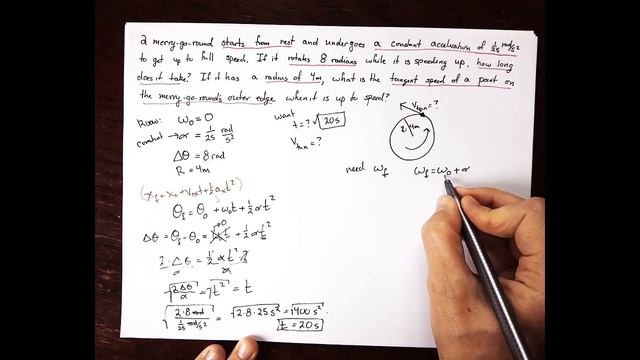 2 merry-go-round starts from rest and undergoes a constant acceleration of 1/25 rad/s²
to get up to full speed. If it rotates 8 radians while it is speeding up, how long
does it take? If it has a radius of 4m, what is the tangent speed of a point on
the merry-go-round's outer edge when it is up to speed?
Know: ω₀ = 0
constant → α = 1/25 rad/s²
Δθ = 8 rad
R = 4m
want
t = ? √ 20s
Vtan = ?
Vtan = ?
4m
need ωf   ωf = ω₀ + α
(xf = x₀ + v₀ₓt + ½aₓt²)
θf = θ₀ + ω₀t + ½αt²
Δθ = θf - θ₀ = ω₀t + ½αt²
→0
2·Δθ/α = ½αt²·2/α
√(2Δθ/α) = √t² = t
√(2·8 rad / (1/25 rad/s²)) = √(2·8·25 s²) = √(400 s²)
t = 20s